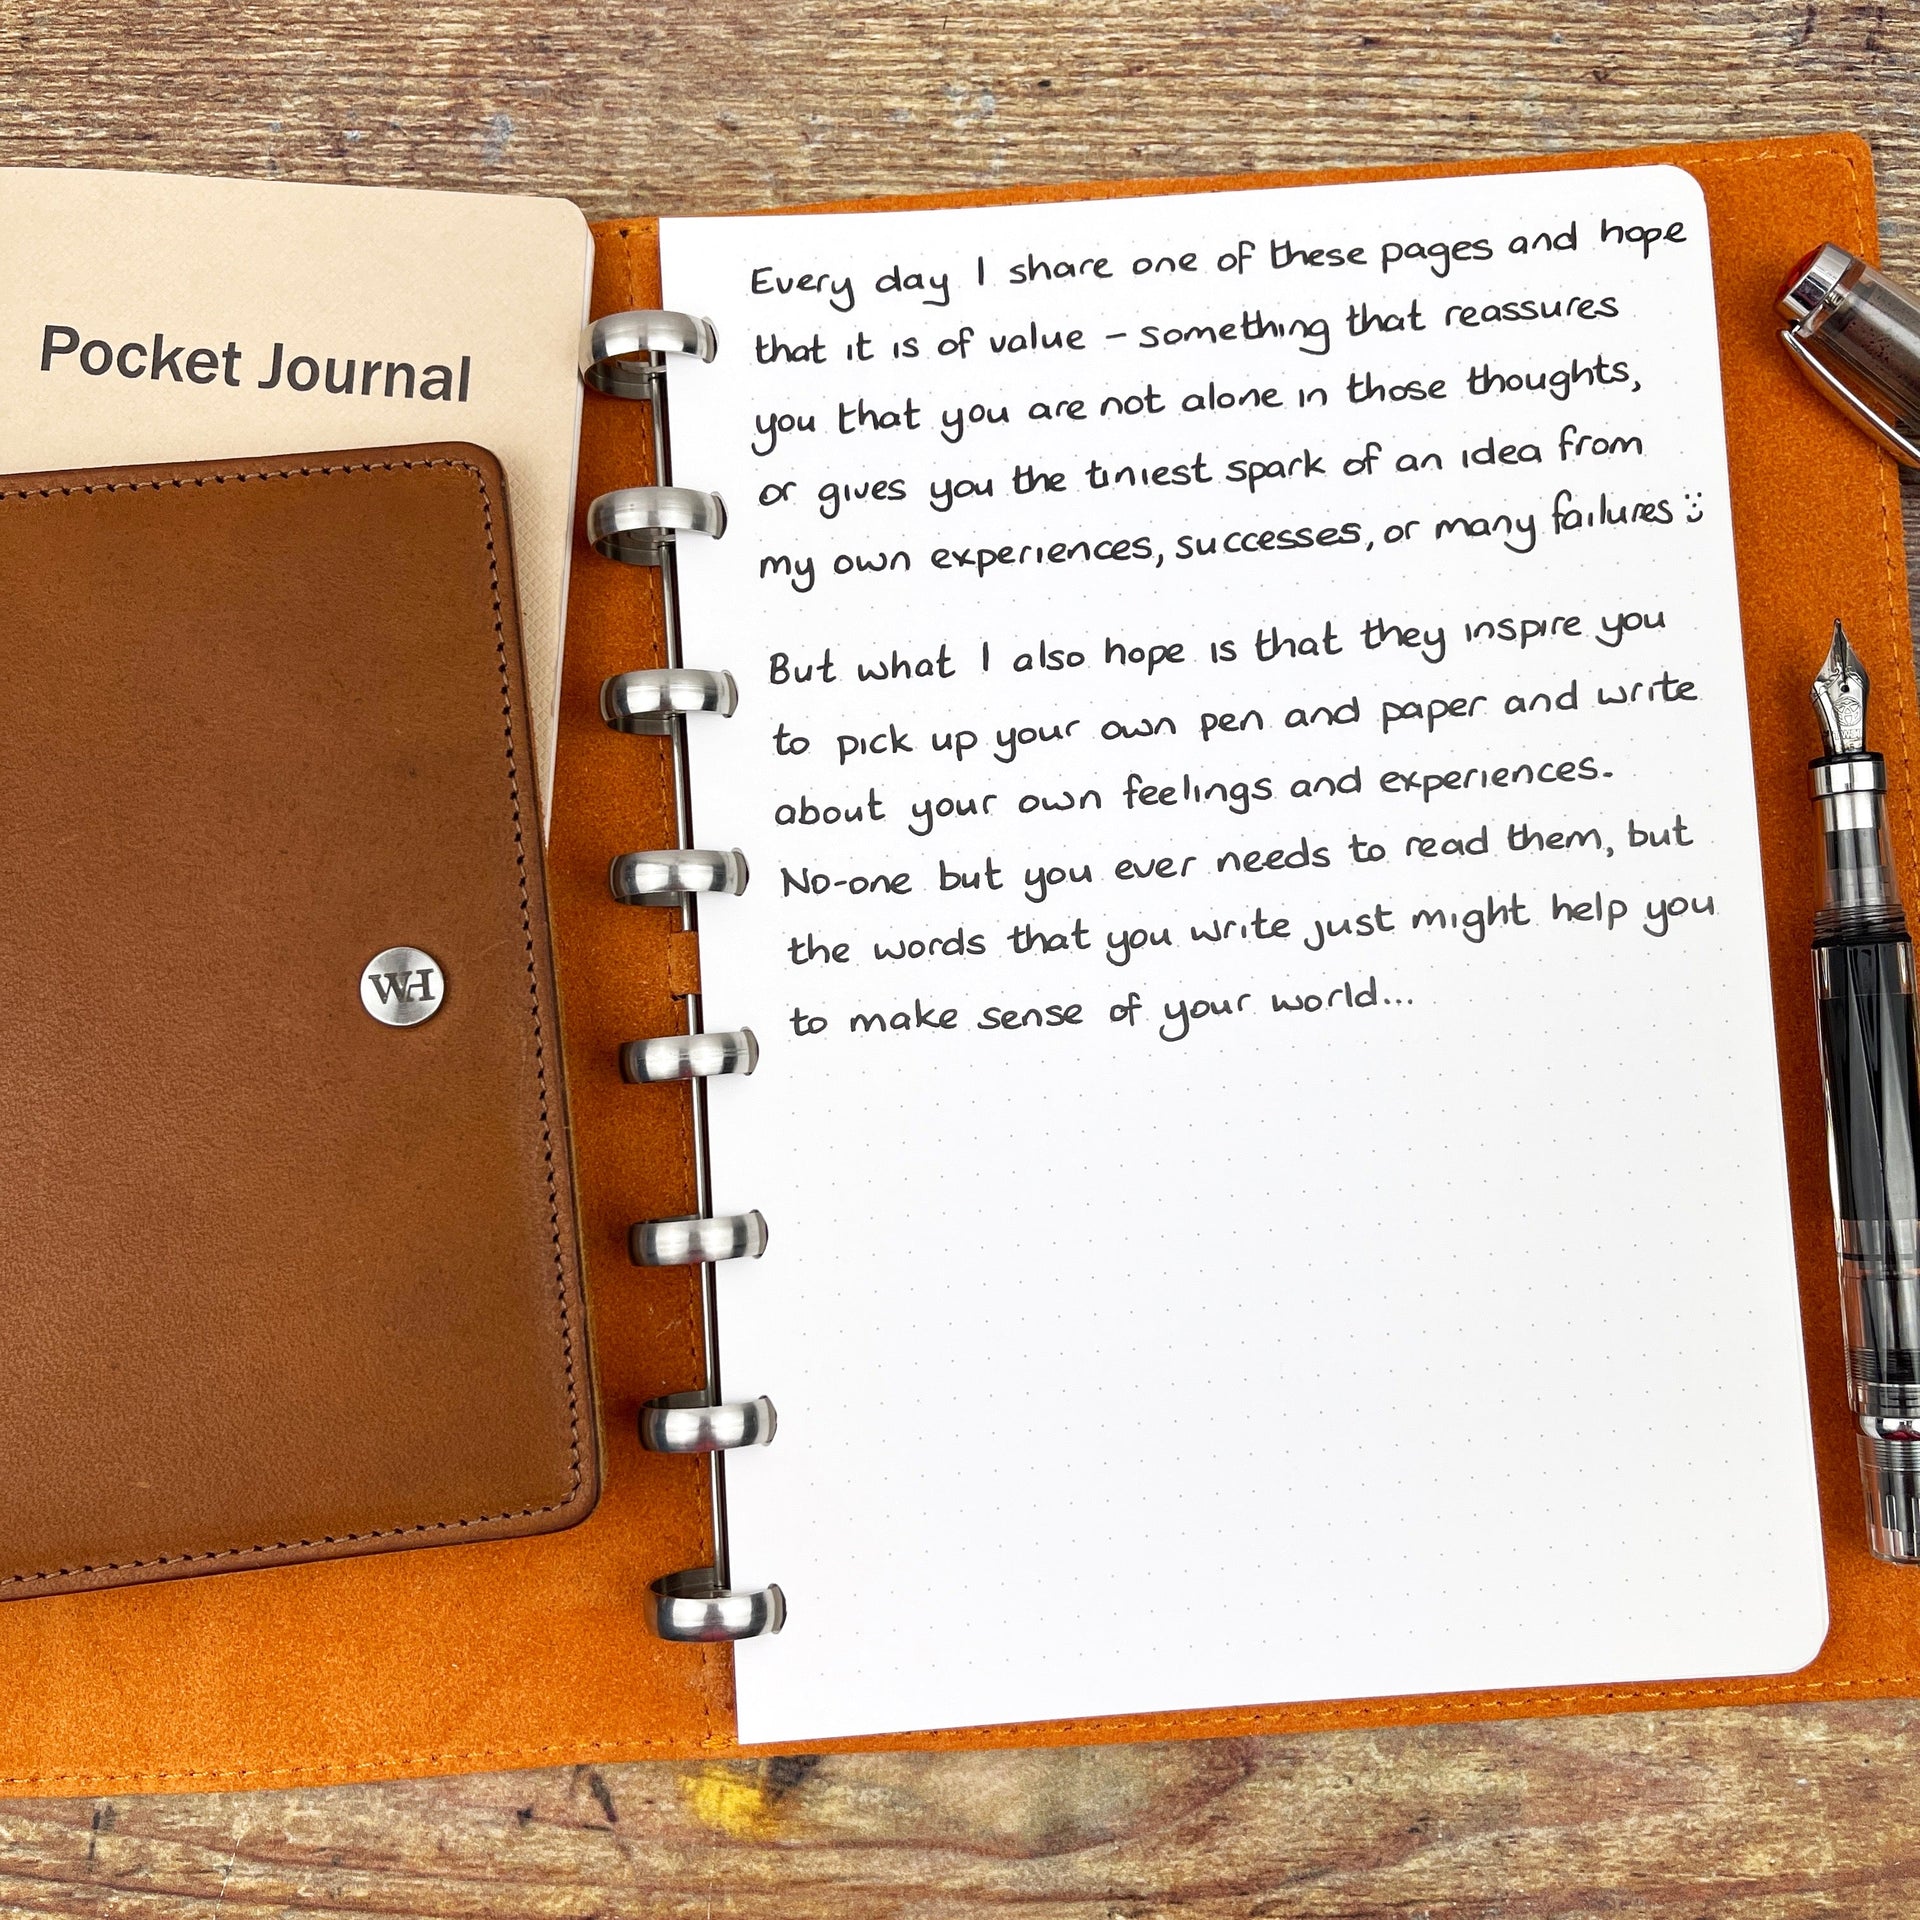 Pocket Journal
WH
Every day I share one of these pages and hope
that it is of value – something that reassures
you that you are not alone in those thoughts,
or gives you the tiniest spark of an idea from
my own experiences, successes, or many failures :)
But what I also hope is that they inspire you
to pick up your own pen and paper and write
about your own feelings and experiences.
No-one but you ever needs to read them, but
the words that you write just might help you
to make sense of your world...